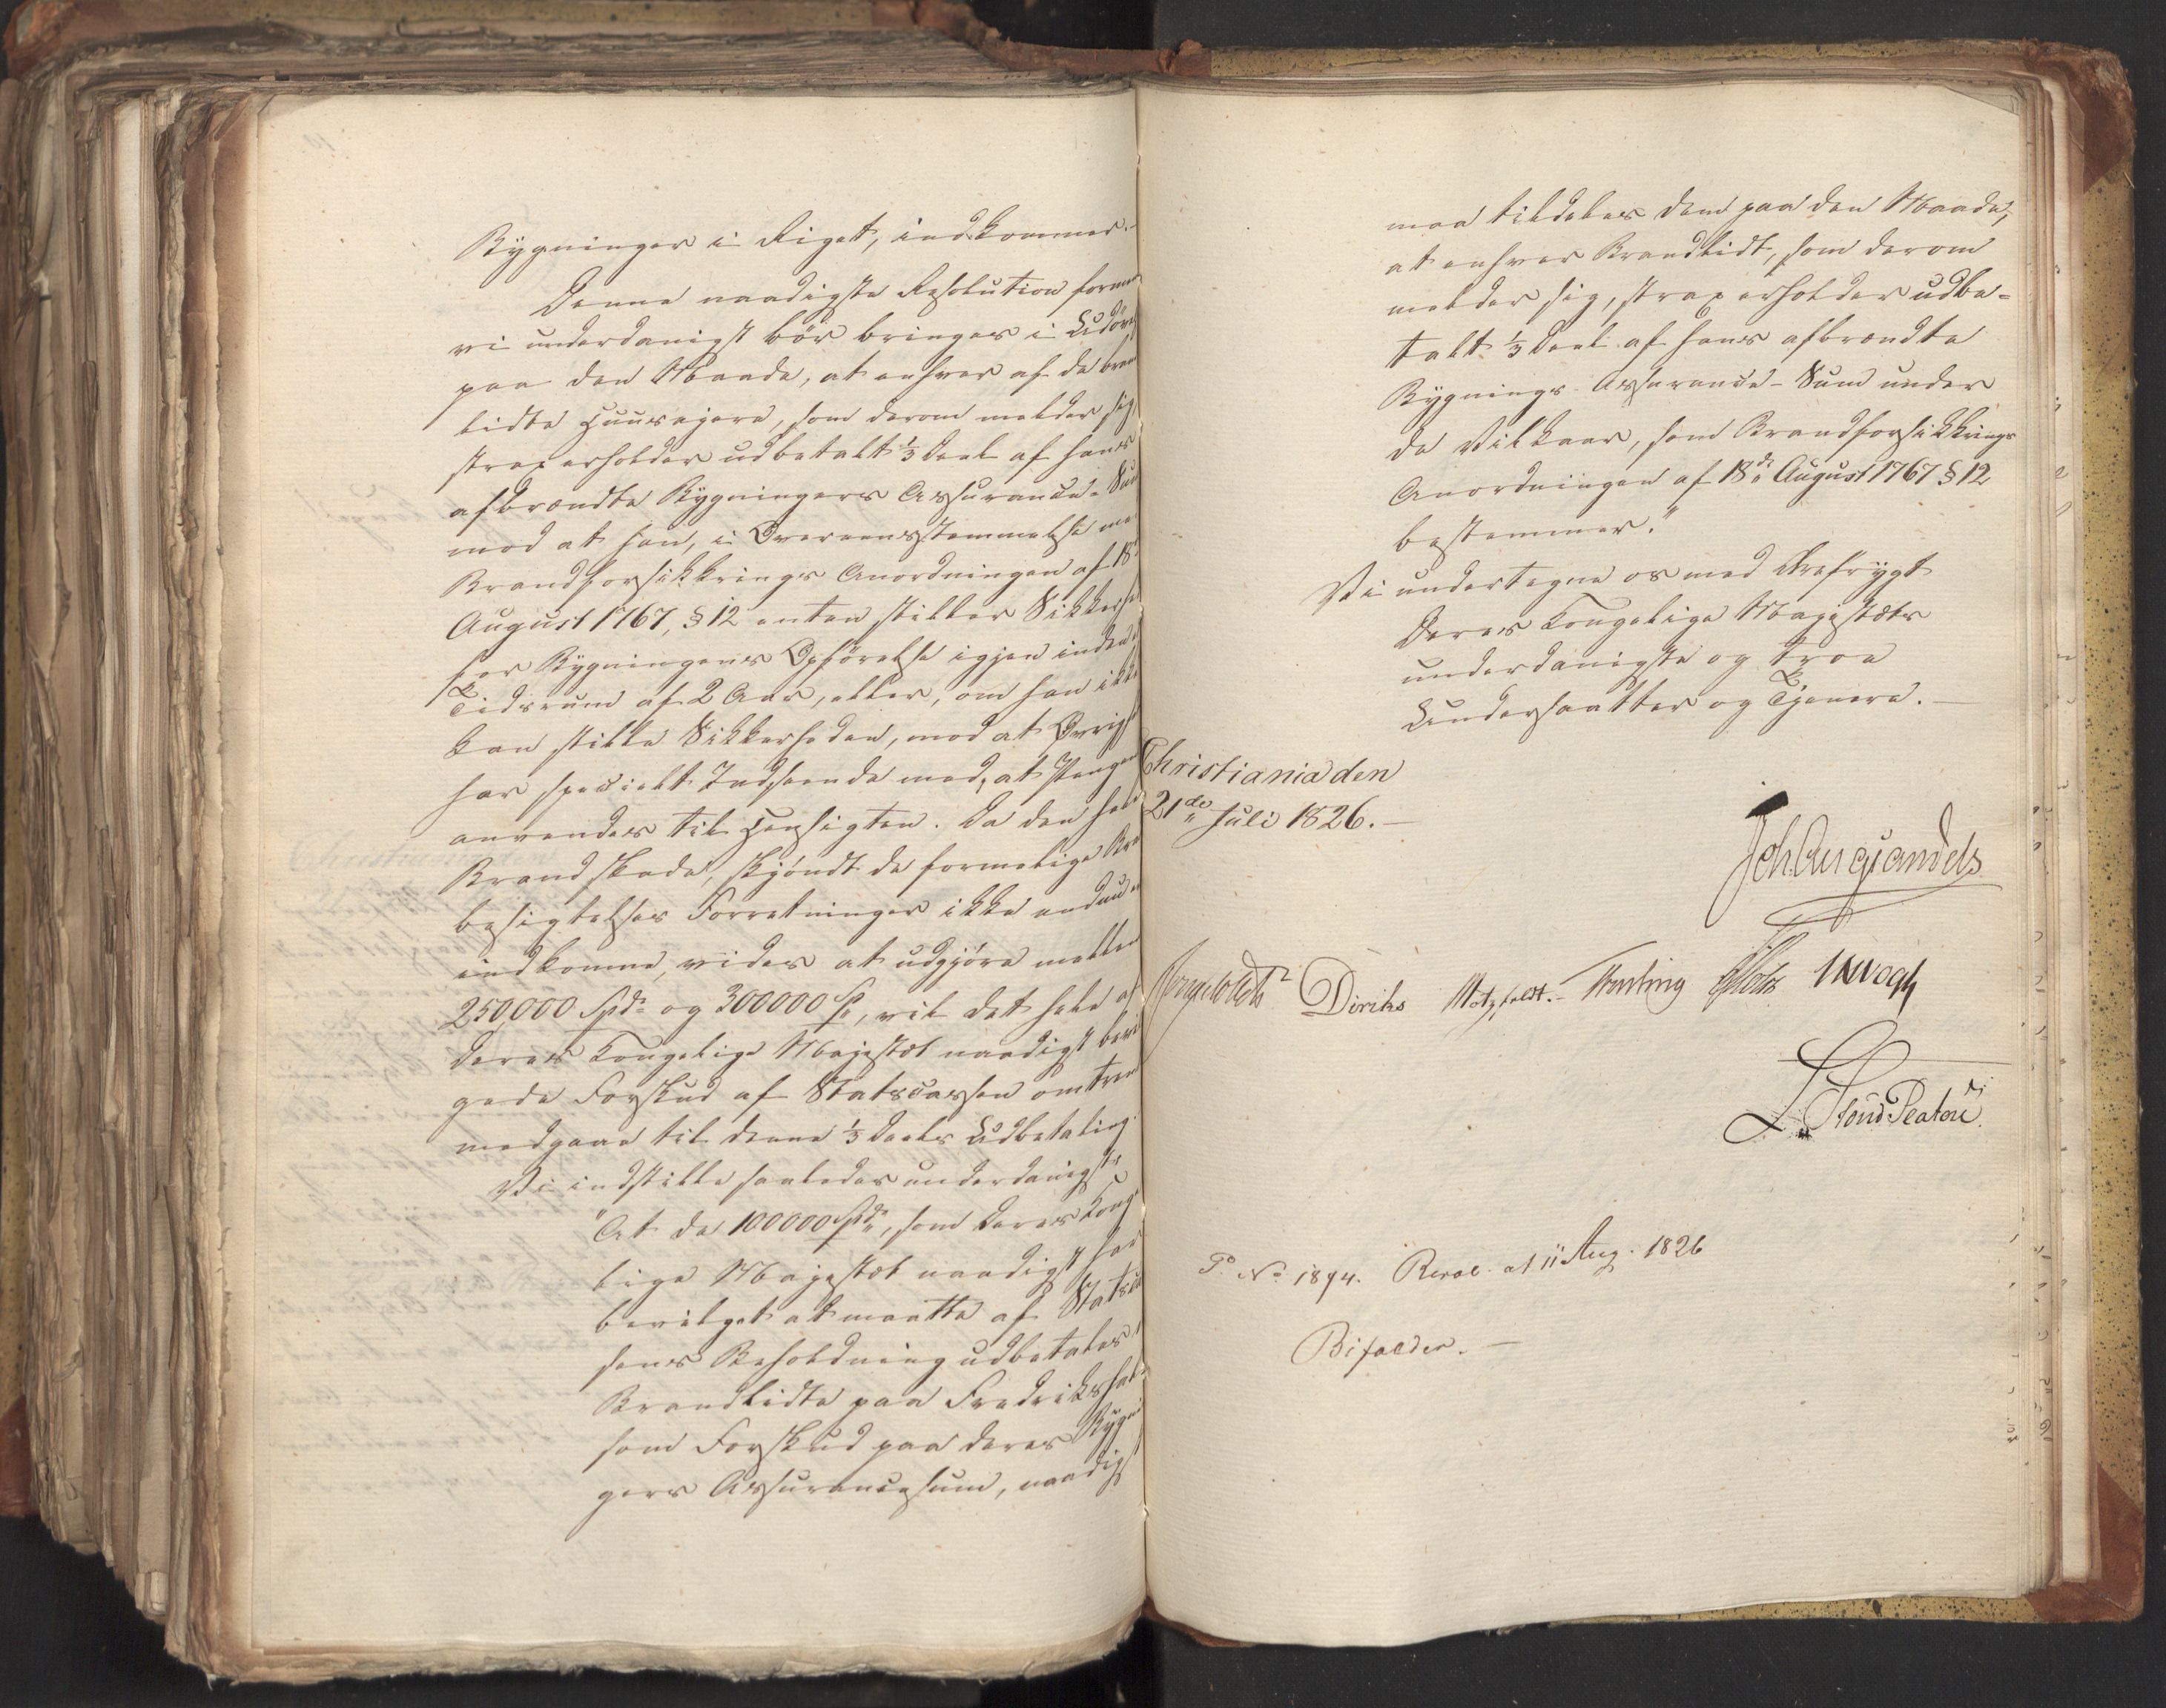 Bygninger i Riget, indkommer.
Denne naadigste Resolution forme
vi underdanigst bør bringes i Udøvel
paa den Maade, at enhver af de bran
lidte Huusejere, som derom melder sig,
strax erholder udbetalt 1/3 Deel af hans
afbrændte Bygningers Assurance-Sum
mod at han, i Overeensstemmelse me
Brandforsikkrings Anordningen af 18
August 1767, § 12 enten stiller Sikkerhe
for Bygningens Opførelse igjen inden
Tidsrum af 2 Aar, eller, om han ikke
kan stille Sikkerheden, mod at Øvrigh
har specielt Indseende med, at Penge
anvendes til Hensigten. Da den hele
Brandskade, skjøndt de formelige Bra
besigtelses Forretninger ikke endnu e
indkomne, vides at udgjøre mellem
250,000 Spd. og 300000 Sp, vil det hele af
Deres Kongelige Majestæt naadigst bevil
gede Forskud af Statscassen omtren
medgaae til denne 1/3 Deels Udbetaling.
Vi indstille saaledes underdanigst,
"At de 100000 Spd., som Deres Konge
lige Majestæt naadigst har
bevilget at maatte af Statscas
sens Beholdning udbetales
Brandlidte paa Fredrikshald
som Forskud paa deres Bygni
gers Assurancesum, naadigst
maa tildeles dem paa den Maade,
at enhver Brandlidt, som derom
melder sig, strax erholder udbe-
talt 1/3 Deel af hans afbrændte
Bygnings-Assurance-Sum under
de Vilkaar, som Brandforsikkrings
Anordningen af 18de August 1767 § 12
bestemmer."
Vi undertegne os med Ærefrygt
Deres Kongelige Majestæts
underdanigste og troe
Undersaatter og Tjenere.-
Christiania den
21de Juli 1826.-
Joh Aug Sandels
Diriks Motzfeldt. JHVogt
P. No 1894. Resol. at 11 Aug. 1826
Bifaldes.-